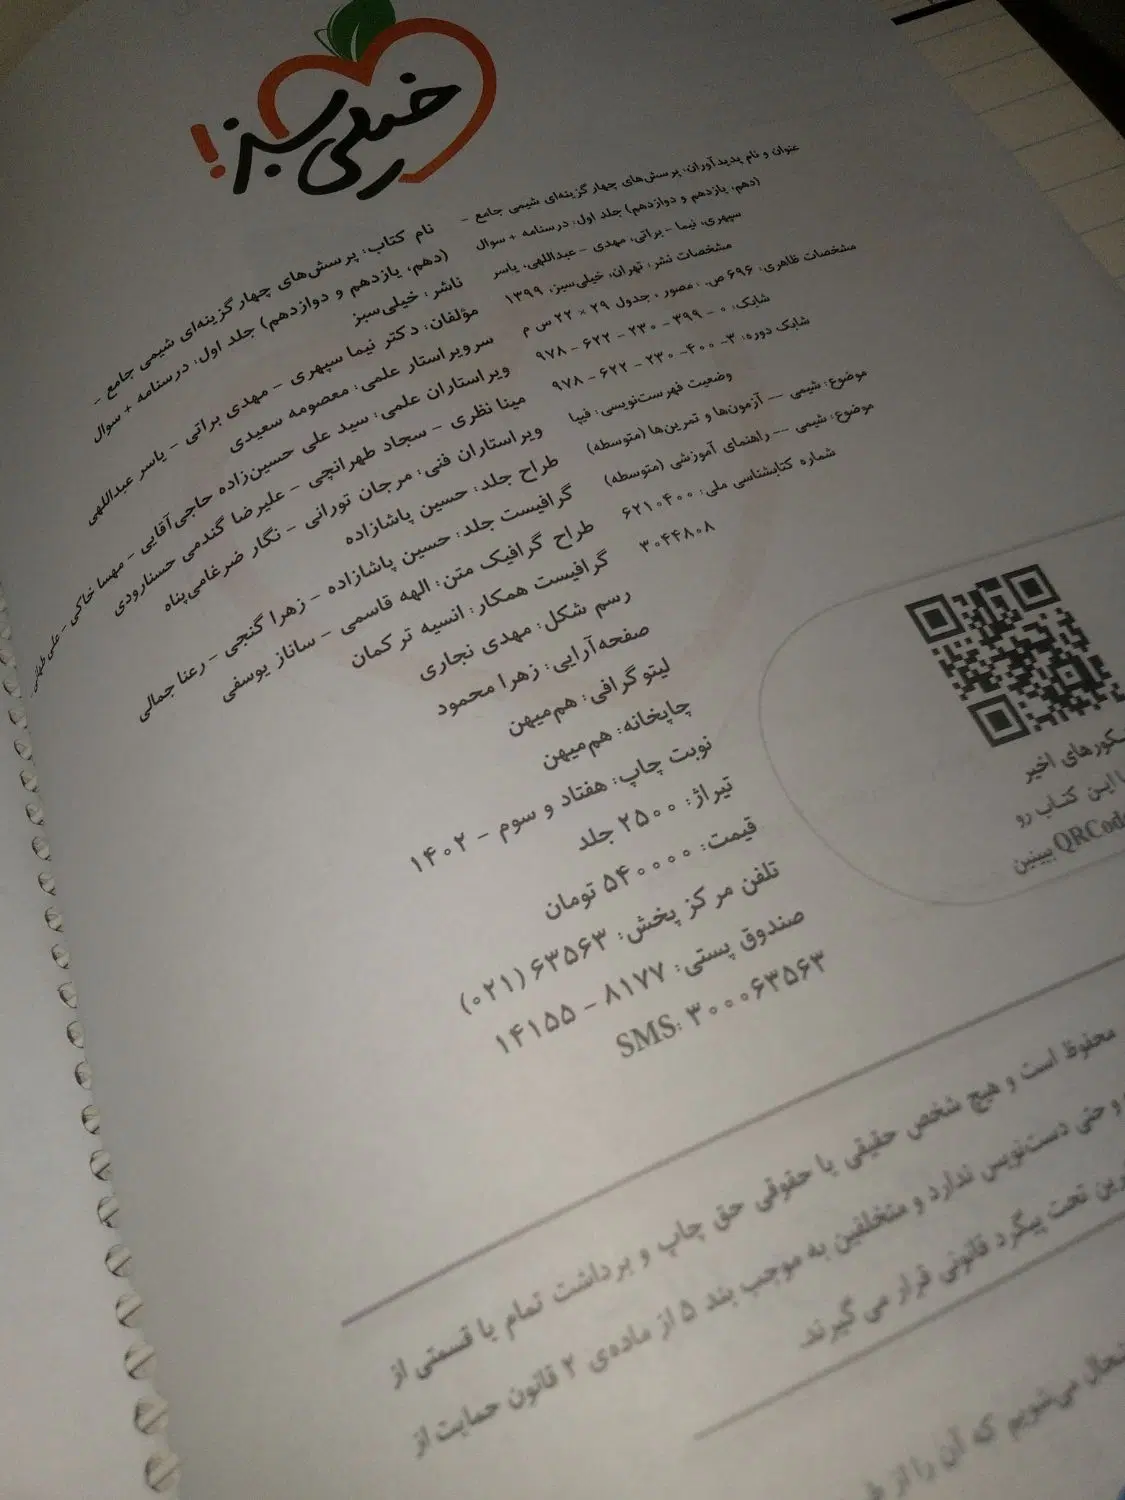 خیلی سبز!
عنوان و نام پدیدآوران: پرسش‌های چهارگزینه‌ای شیمی جامع -
(دهم، یازدهم و دوازدهم) جلد اول: درسنامه + سوال
سپهری، نیما - براتی، مهدی - عبداللهی، یاسر
مشخصات نشر: تهران، خیلی‌سبز، ۱۳۹۹
مشخصات ظاهری: ۶۹۶ ص. : مصور ، جدول ۲۹ × ۲۲ س م
شابک: ۰ - ۳۹۹ - ۲۳۰ - ۶۲۲ - ۹۷۸
شابک دوره: ۳- ۴۰۰- ۲۳۰ - ۶۲۲ - ۹۷۸
وضعیت فهرست‌نویسی: فیپا
موضوع: شیمی -- آزمون‌ها و تمرین‌ها (متوسطه)
موضوع: شیمی -- راهنمای آموزشی (متوسطه)
شماره کتابشناسی ملی: ۶۲۱۰۴۰۰
۳۰۴۴۸۰۸
نام کتاب: پرسش‌های چهارگزینه‌ای شیمی جامع -
(دهم، یازدهم و دوازدهم) جلد اول: درسنامه + سوال
ناشر: خیلی‌سبز
مؤلفان: دکتر نیما سپهری - مهدی براتی - یاسر عبداللهی
سرویراستار علمی: معصومه سعیدی
ویراستاران علمی: سید علی حسین‌زاده حاجی‌آقایی - مهسا خاکی -
مینا نظری - سجاد طهرانچی - علیرضا گندمی حسنارودی
ویراستاران فنی: مرجان تورانی - نگار ضرغامی‌پناه
طراح جلد: حسین پاشازاده
گرافیست جلد: حسین پاشازاده - زهرا گنجی - رعنا جمالی
طراح گرافیک متن: الهه قاسمی - ساناز یوسفی
گرافیست همکار: انسیه ترکمان
رسم شکل: مهدی نجاری
صفحه‌آرایی: زهرا محمود
لیتوگرافی: هم‌میهن
چاپخانه: هم‌میهن
نوبت چاپ: هفتاد و سوم - ۱۴۰۲
تیراژ: ۲۵۰۰ جلد
قیمت: ۵۴۰۰۰۰ تومان
تلفن مرکز پخش: ۶۳۵۶۳ (۰۲۱)
صندوق پستی: ۸۱۷۷ - ۱۴۱۵۵
SMS: ۳۰۰۰۶۳۵۶۳
های اخیر
این کتاب رو
QRCode ببینین
محفوظ است و هیچ شخص حقیقی یا حقوقی حق چاپ و برداشت تمام یا قسمتی از
و حتی دست‌نویس ندارد و متخلفین به موجب بند ۵ از ماده‌ی ۲ قانون حمایت از
تحت پیگرد قانونی قرار می گیرند.
می‌شویم که آن را از